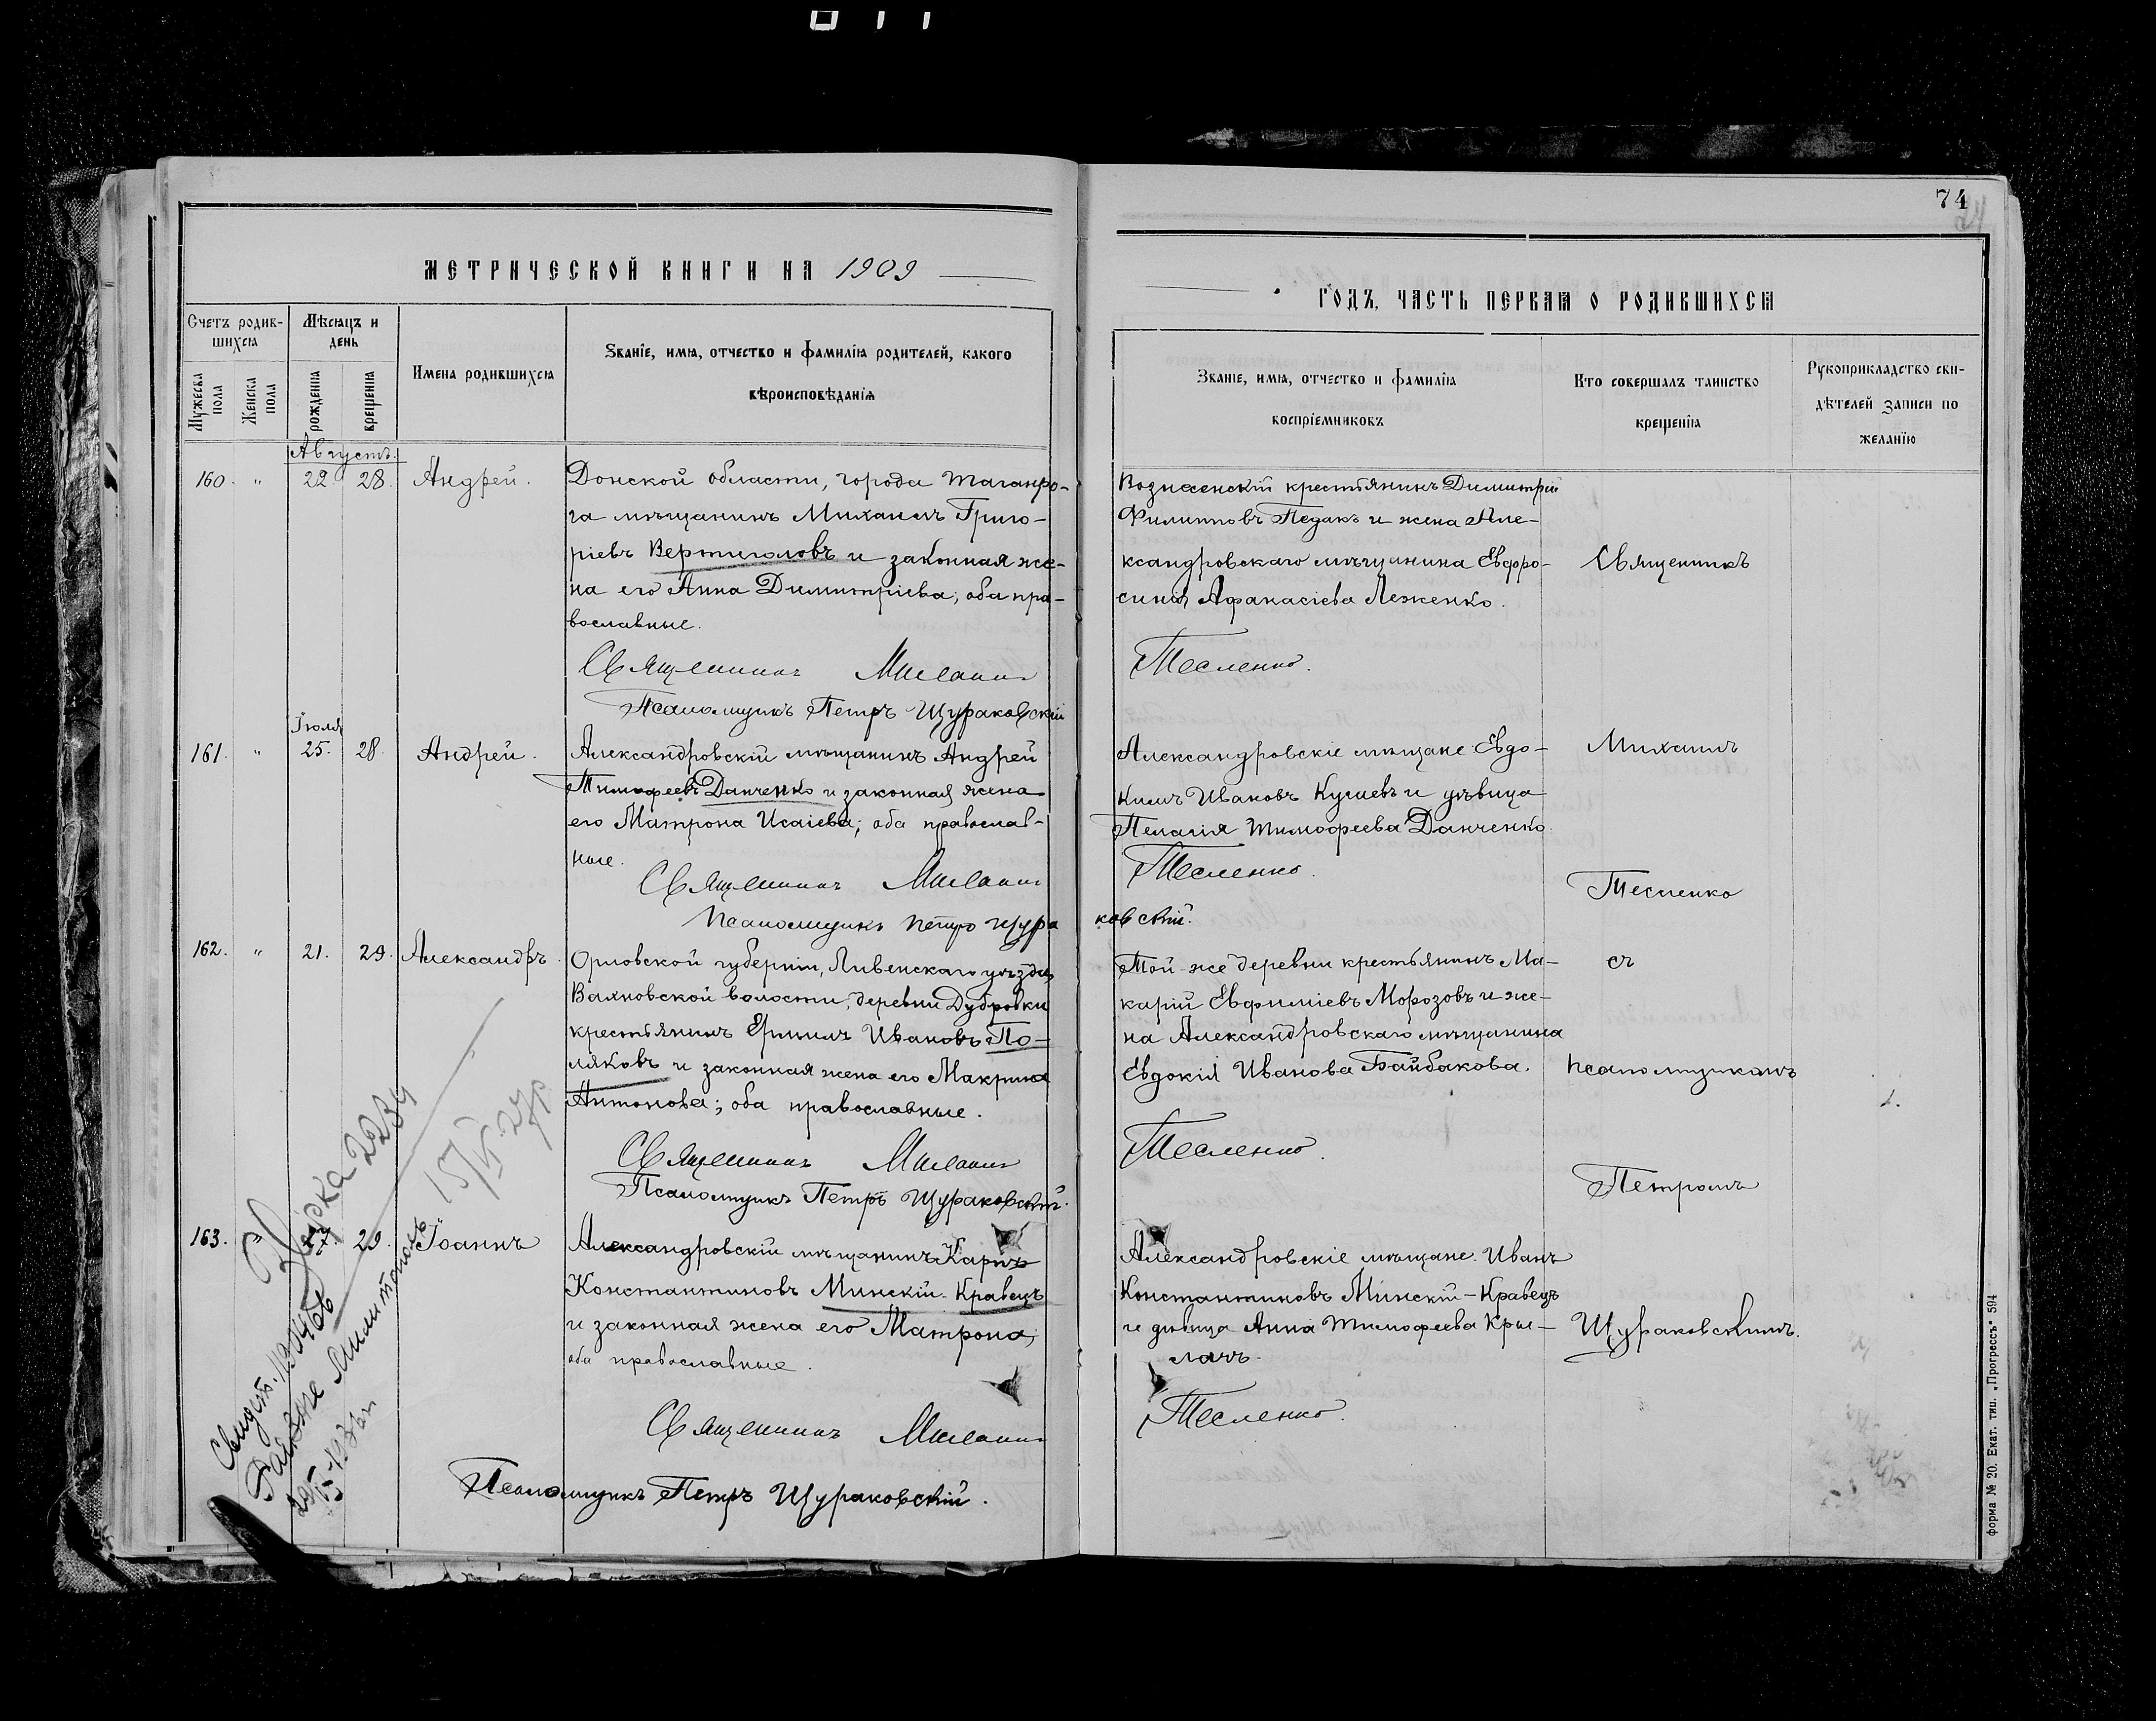 74
МЕТРИЧЕСКОЙ КНИГИ НА 1909
ГОДЪ, ЧАСТЬ ПЕРВАЯ О РОДИВШИХСЯ
Счетъ родив-
шихся
Мѣсяцъ и
день
Имена родившихся
Званіе, имя, отчество и фамилія родителей, какого
вѣроисповѣданія
Мужеска пола
Женска пола
рожденія
крещенія
Званіе, имя, отчество и фамилія
воспріемниковъ
Кто совершалъ таинство
крещенія
Рукоприкладство сви-
дѣтелей записи по
желанію
Августъ.
160. " 22 28. Андрей.
Донской области, города Таганро-
га мѣщанинъ Михаилъ Григо-
ріевъ Вертиголовъ и законная же-
на его Анна Димитріева; оба пра-
вославные.
Священникъ
Псаломщикъ Петръ Щураковскій
Вознесенскій крестьянинъ Димитрій
Филипповъ Педакъ и жена Але-
ксандровскаго мѣщанина Евфро-
синія Афанасіева Леженко.
Тесленко.
Іюля
161. " 25. 28. Андрей.
Александровскій мѣщанинъ Андрей
Тимофеевъ Данченко и законная жена
его Матрона Исаіева; оба православ-
ные.
Священникъ
Псаломщикъ Петръ Щура
ковскій.
Александровскіе мѣщане Евдо-
кимъ Ивановъ и дѣвица
Пелагія Тимофеева Данченко.
Тесленко.
162. " 21. 29. Александръ.
Орловской губерніи, Ливенскаго уѣзда,
Вахновской волости, деревни Дубровки
крестьянинъ Ермилъ Ивановъ По-
ляковъ и законная жена его Макрина
Антонова; оба православные.
Священникъ
Псаломщикъ Петръ Щураковскій.
Той-же деревни крестьянинъ Ма-
карій Евфиміевъ Морозовъ и же-
на Александровскаго мѣщанина
Евдокія Иванова Байбакова.
Тесленко.
163. 29. Іоаннъ
Александровскій мѣщанинъ Карпъ
Константиновъ Минскій-Кравецъ
и законная жена его Матрона;
оба православные.
Священникъ
Псаломщикъ Петръ Щураковскій.
Александровскіе мѣщане Иванъ
Константиновъ Минскій-Кравецъ
и дѣвица Анна Тимофеева Кры-
лачъ.
Тесленко.
Священникъ
Михаилъ
Тесленко
съ
псаломщикомъ
Петромъ
Щураковскимъ.
форма № 20. Екат. тип. „Прогрессъ" 594